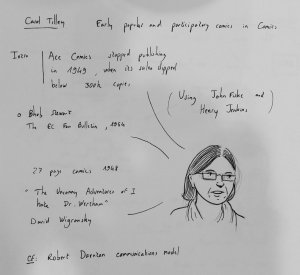 Carol Tilley
Early popular and participatory comics in Comics
Intro
Ace Comics stopped publishing
in 1949, when its sales dipped
below 300k copies
(Using John Fiske and
Henry Jenkins)
The EC Fan Bulletin, 1954
27 page comics 1948
"The Uncanny Adventures of I
hate Dr. Wertham"
David Wigransky
Cf: Robert Darnton communications model